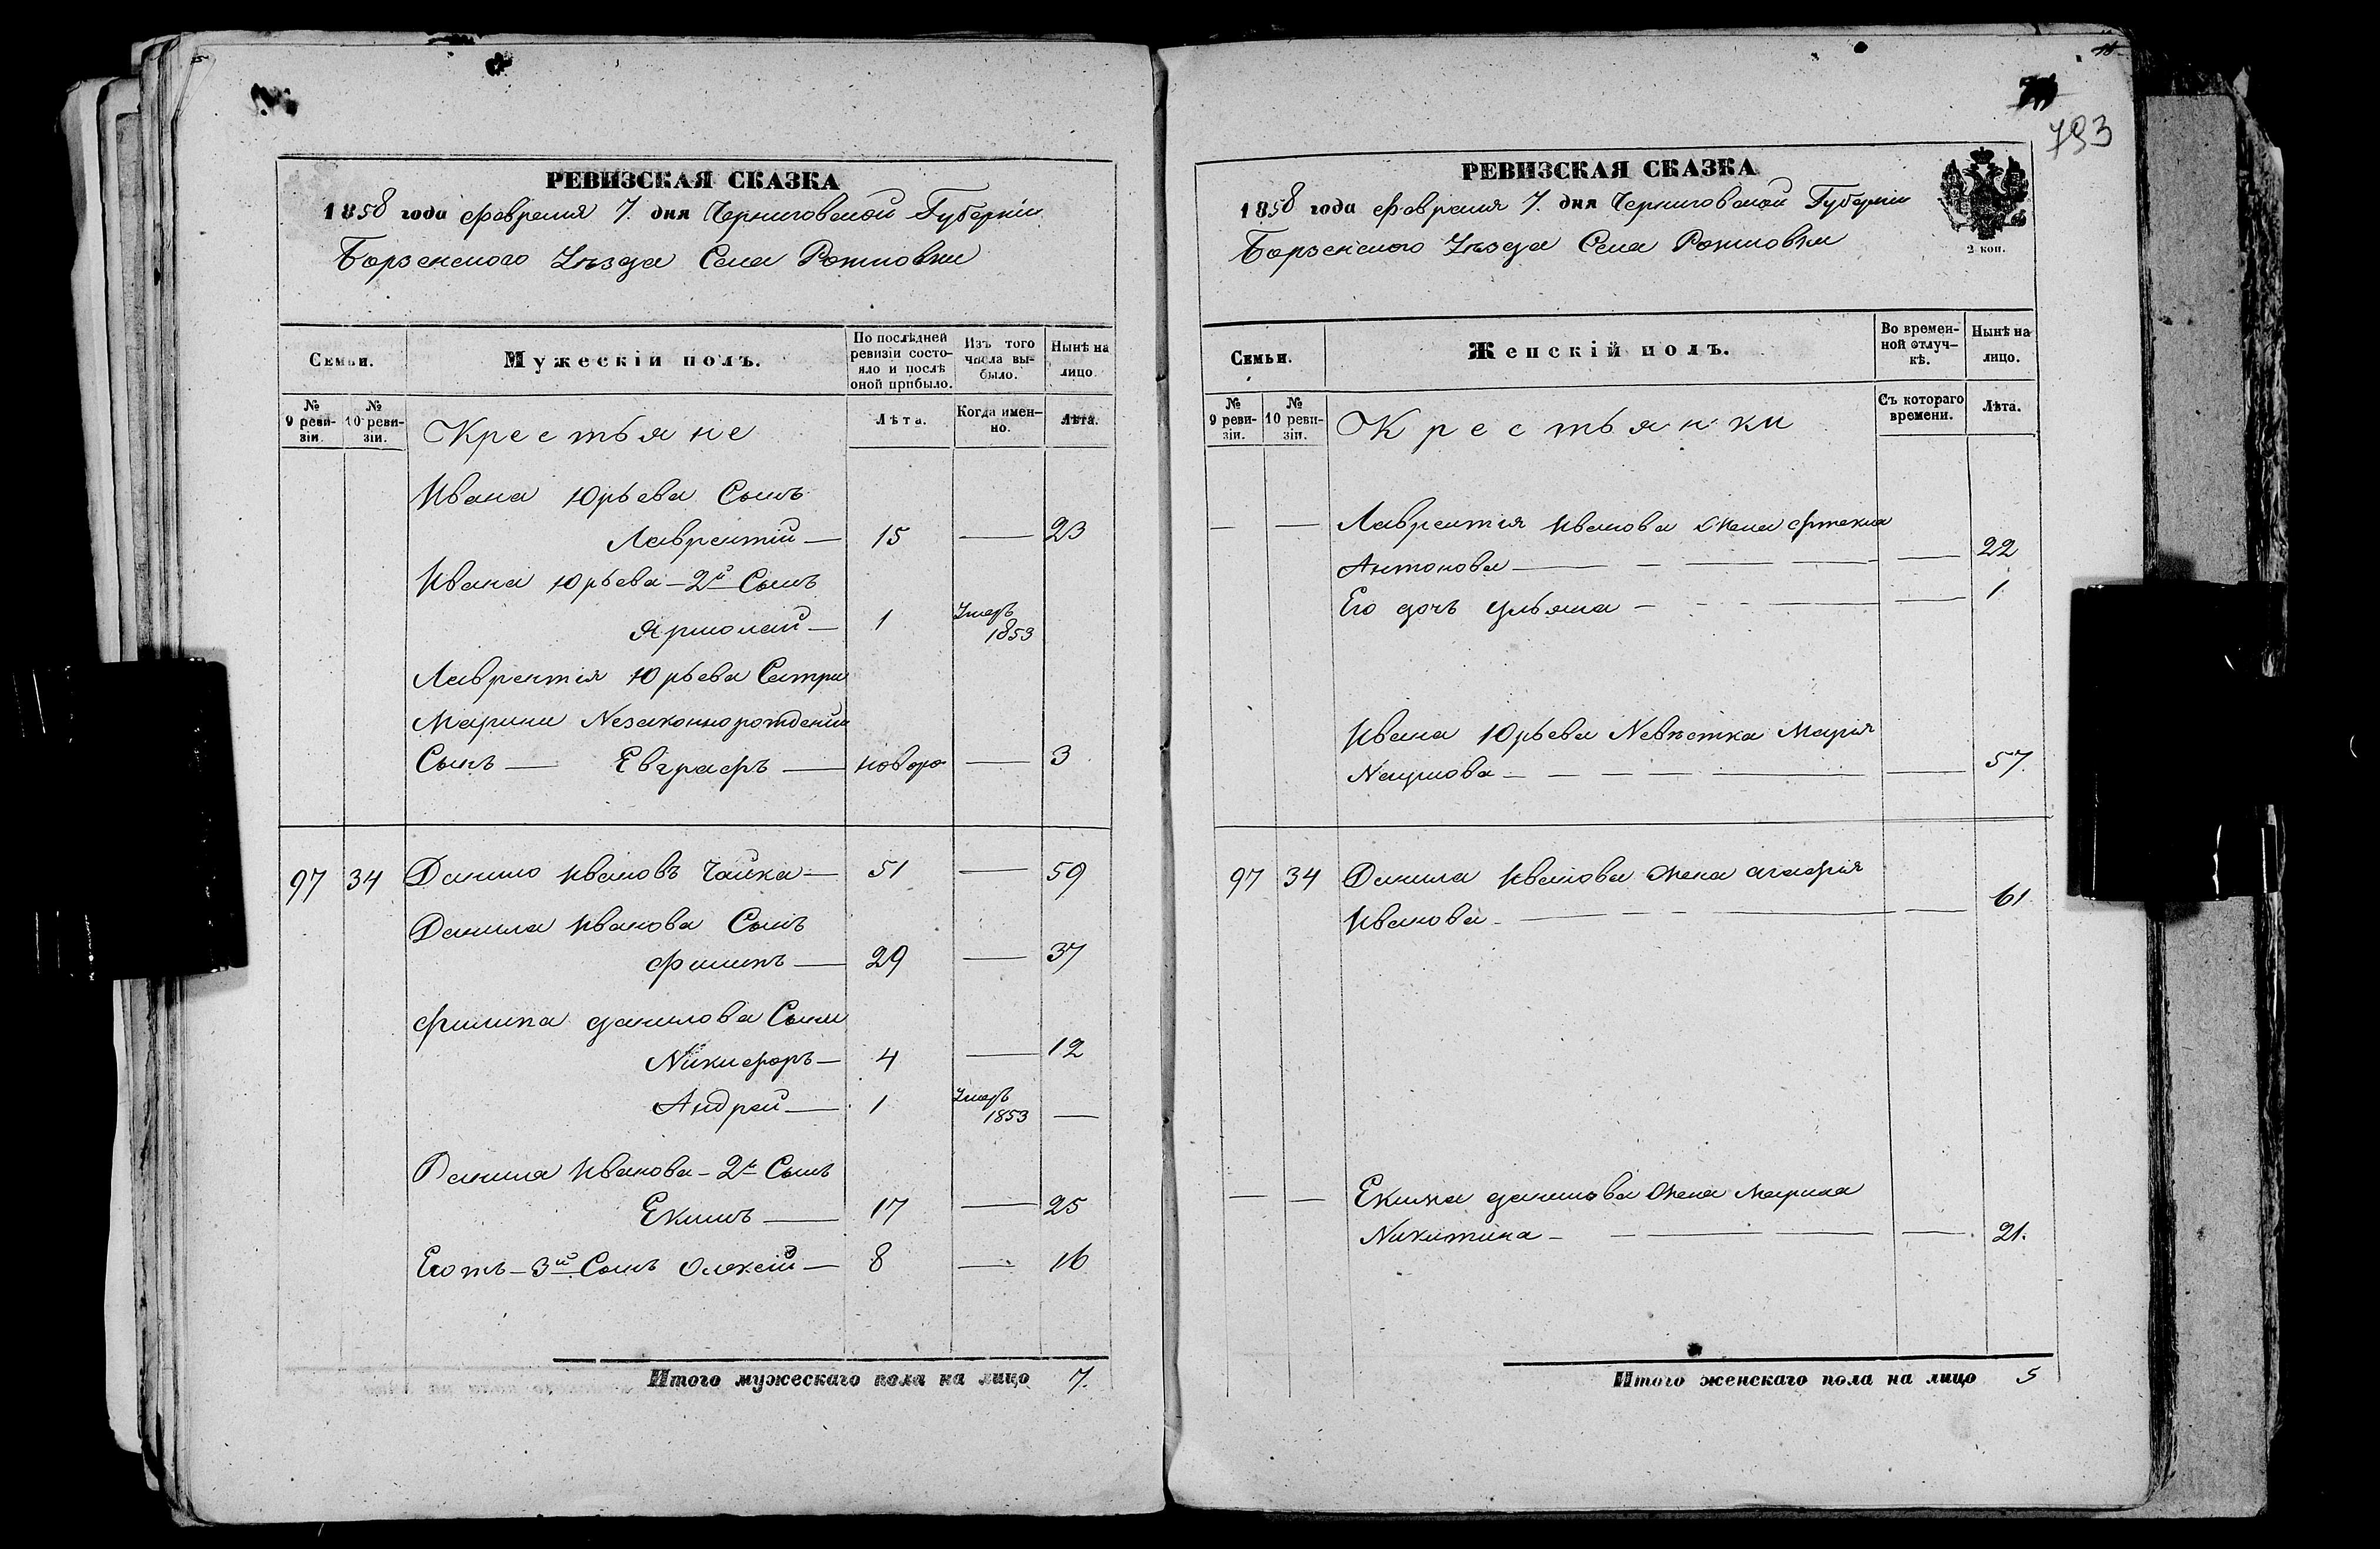 793
РЕВИЗСКАЯ СКАЗКА
1858 года февраля 7. дня Черниговской Губерніи
Борзенского Уѣзда Села
Семьи.
Мужескій полъ.
По послѣдней ревизіи состояло и послѣ оной прибыло.
Изъ того числа выбыло.
Нынѣ на лицо.
№ 9 ревизіи.
№ 10 ревизіи.
Крестьяне
Лѣта.
Когда именно.
Лѣта.
Ивана Юрьева Сынъ
Лаврентій — 15 — 23
Ивана Юрьева — 2й Сынъ
Ярмолай — 1 Умеръ 1853
Лаврентія Юрьева Сестри
Марини Незаконнорожденій
Сынъ — Евграфъ — новоро — 3
97 34 Данило Ивановъ Чайка — 51 — 59
Данила Иванова Сынъ
Филипъ — 29 — 37
Филипа Данилова Сыни
Никифоръ — 4 — 12
Андрей — 1 Умеръ 1853 —
Данила Иванова — 2й Сынъ
Екимъ — 17 — 25
Егожъ — 3й Сынъ Олексій — 8 — 16
Итого мужескаго пола на лицо 7.
РЕВИЗСКАЯ СКАЗКА
2 коп.
1858 года февраля 7. дня Черниговской Губерніи
Борзенского Уѣзда Села
Семьи.
Женскій полъ.
Во временной отлучкѣ.
Нынѣ на лицо.
№ 9 ревизіи.
№ 10 ревизіи.
Крестьянки
Съ котораго времени.
Лѣта.
— — Лаврентія Иванова Жена
Антонова — — — — — 22
Его дочь Ульяна — — — — 1
Ивана Юрьева Невѣстка Марія
Наумова — — — — — — 57.
97 34 Данила Иванова Жена Агафія
Иванова — — — — — 61
— — Екима Данилова Жена Марина
Никитина — — — — — 21.
Итого женскаго пола на лицо 5